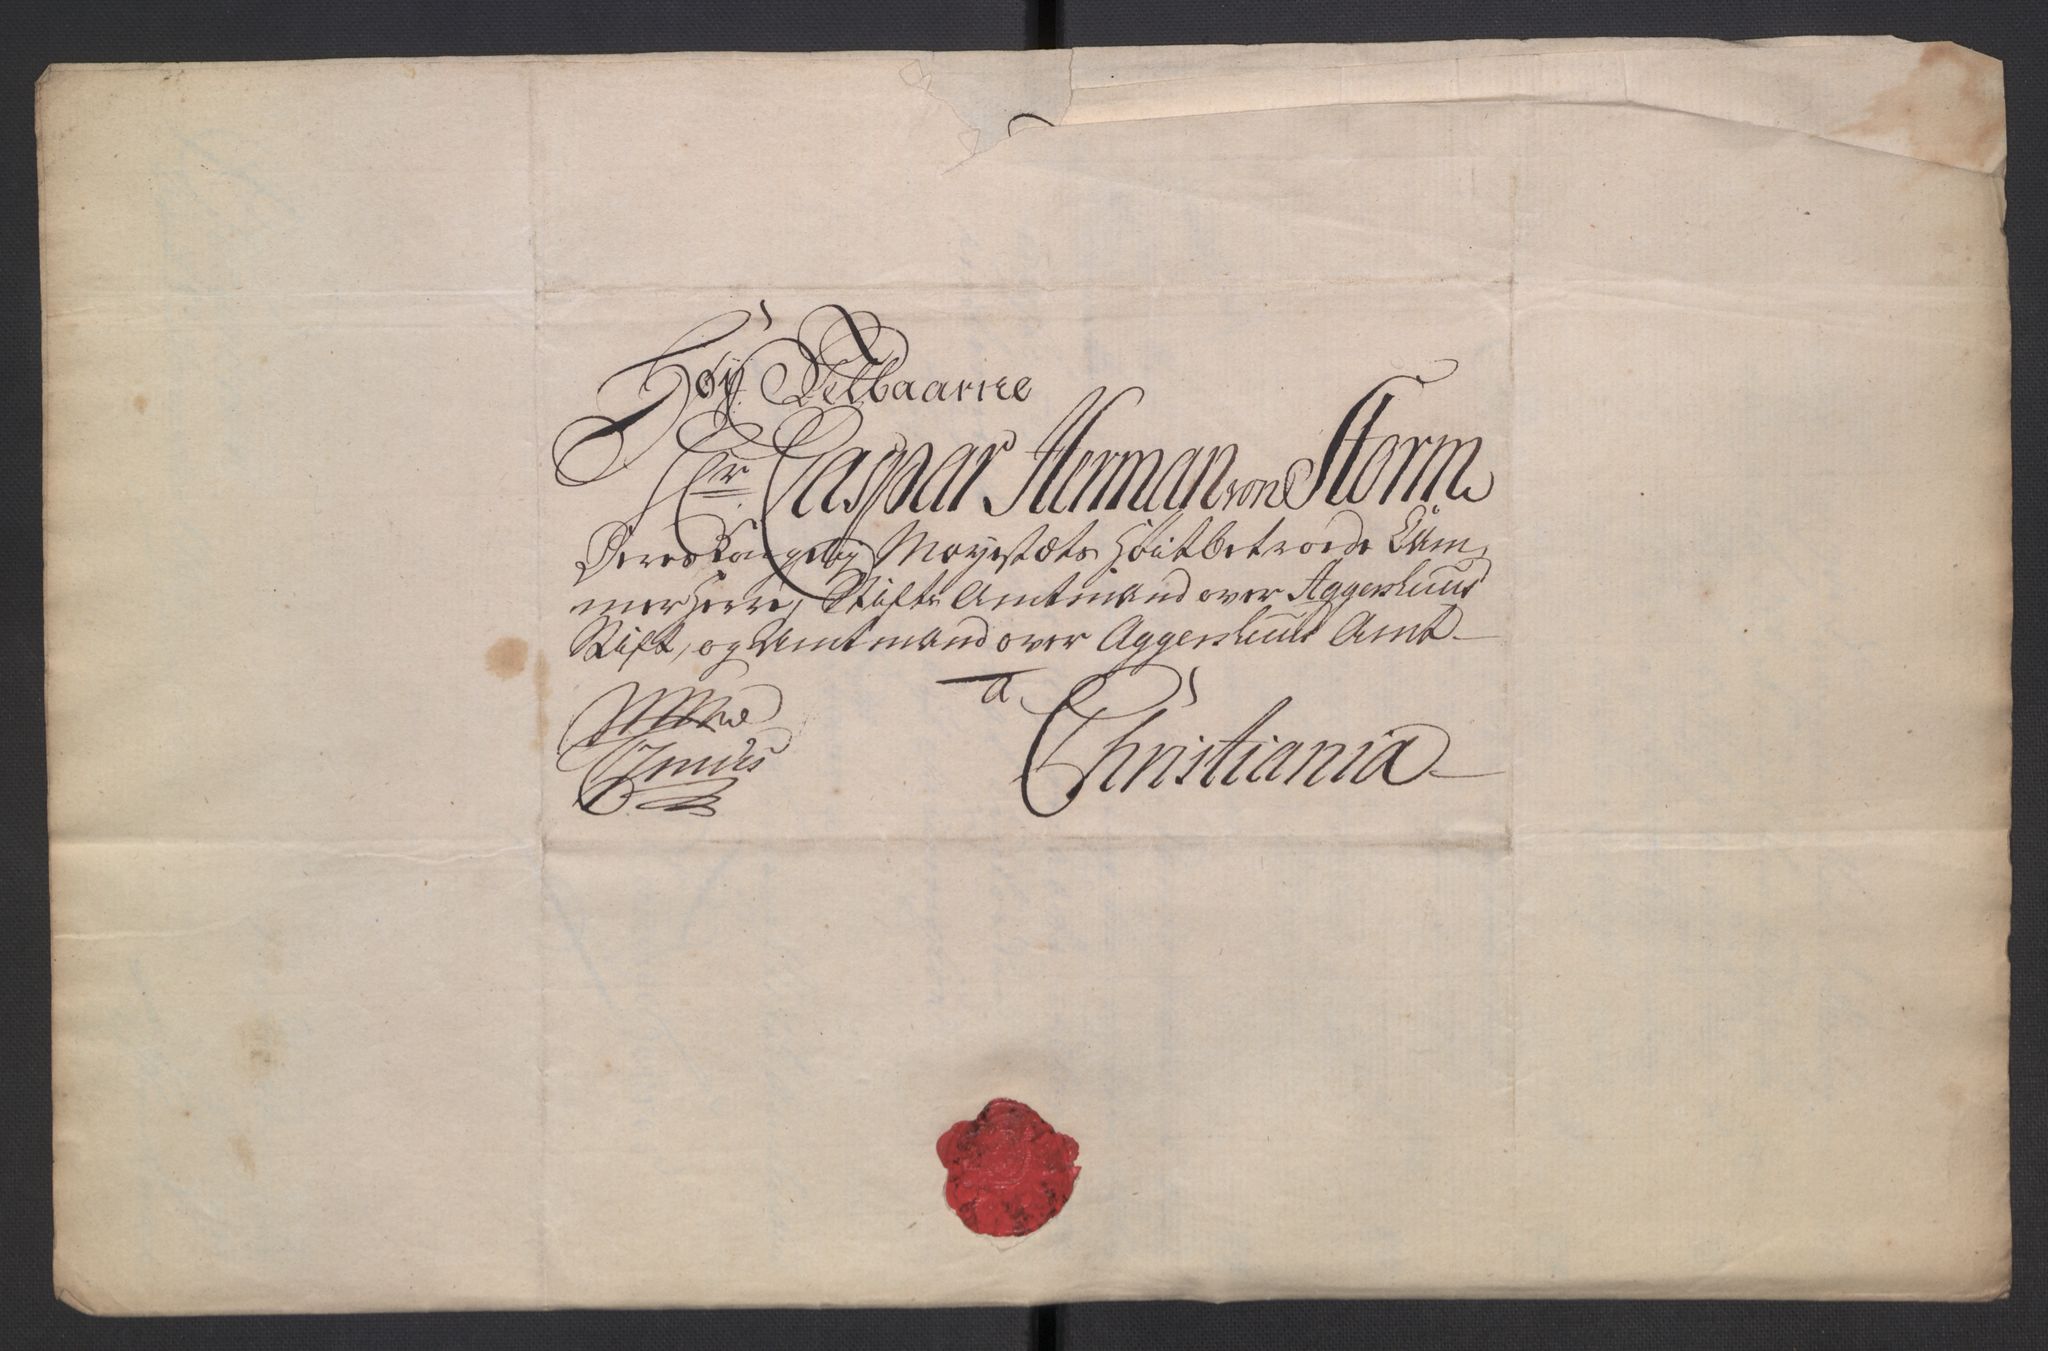 Høy Velbaarne
Hr. Caspar Herman von Storm
Deres Kongelig Mayestæts Høitbetroede Cam,
merHerre, Stifts Amtmand over Aggershuus
Stift, og Amtmand over Aggershuus Amt
a
Christiania